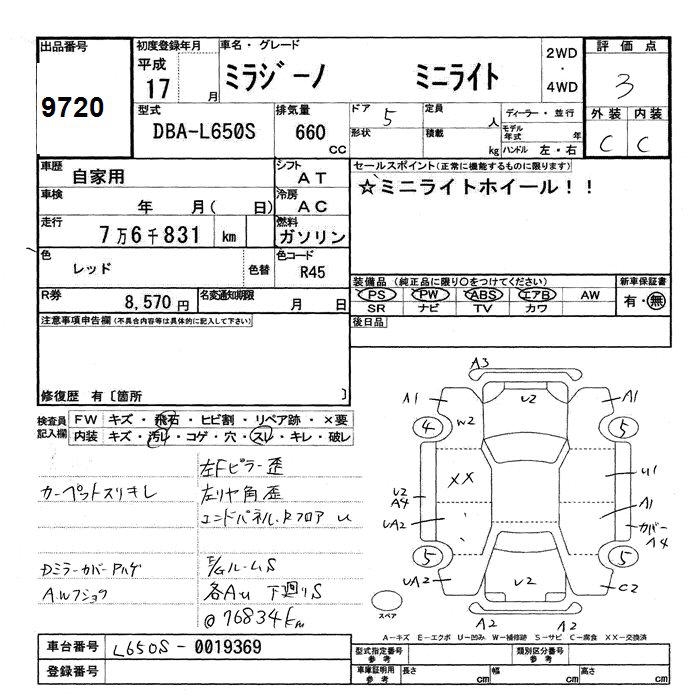 出品番号 初度登録年月 車名・グレード 2WD・4WD 評価点
9720 平成 17 月 ミラジーノ ミニライト 3
型式 排気量 ドア 5 定員 人 ディーラー・並行 外装 内装
DBA-L650S 660 CC 形状 積載 kg モデル年式 年 ハンドル 左・右 C C
車歴 自家用 シフト AT セールスポイント(正常に機能するものに限ります)
車検 年 月( 日) 冷房 AC ☆ミニライトホイール!!
走行 7万6千831 km 燃料 ガソリン
色 レッド 色替 色コード R45
装備品(純正品に限り○をつけてください) 新車保証書
R券 8,570円 名変通知期限 月 日 PS PW ABS エアB AW 有・無
SR ナビ TV カワ
注意事項申告欄(不具合内容等は具体的に記入して下さい) 後日品
修復歴 有〔箇所 〕
検査員記入欄 FW キズ・飛石・ヒビ割・リペア跡・×要
内装 キズ・汚レ・コゲ・穴・スレ・キレ・破レ
左Fピラー歪
カーペットスリキレ 左リヤ角歪
エンドパネル.RフロアU
Dミラーカバーハゲ F/GルームS
A.Wフショク 各AU 下廻りS
@76834km
A3
A1 U2 A1
4 W2 5
XX U1
U2 A4 A1
UA2 カバーA4
5 5
UA2 U2 C2
スペア A2 A2
A-キズ E-エクボ U-凹み W-補修跡 S-サビ C-腐食 XX-交換済
車台番号 L650S-0019369 型式指定番号 参考 類別区分番号 参考
登録番号 車庫証明用 参考 長さ cm 幅 cm 高さ cm